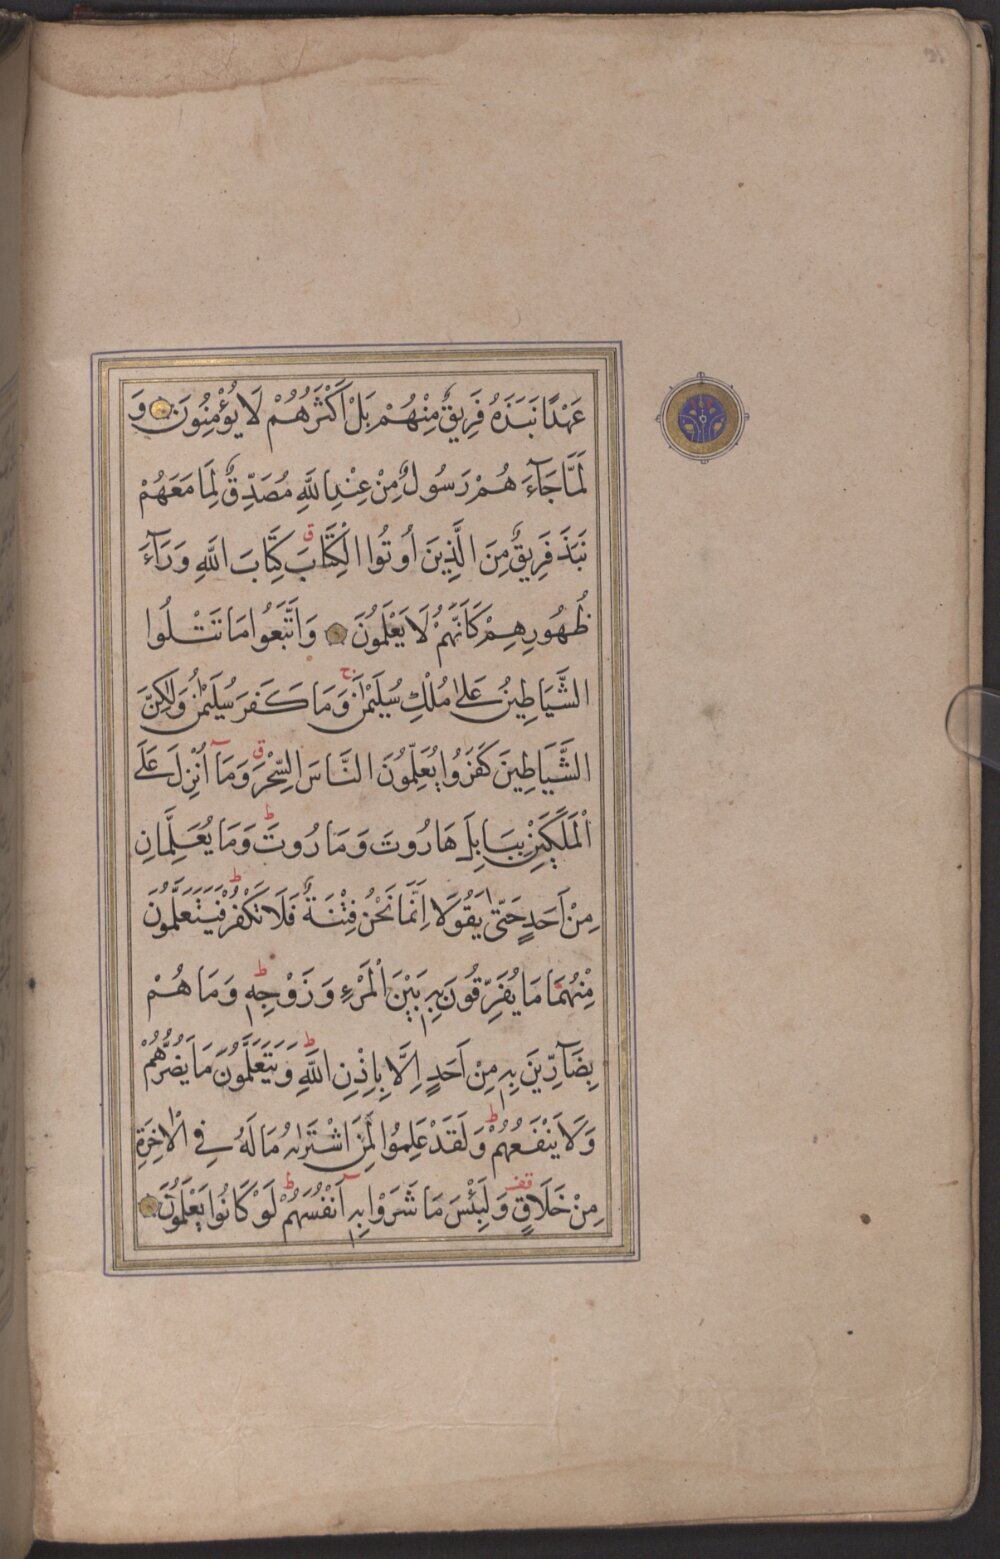 عَهْدًا نَبَذَهُ فَرِيقٌ مِنْهُمْ بَلْ أَكْثَرُهُمْ لَا يُؤْمِنُونَ وَ
لَمَّا جَآءَ هُمْ رَسُولٌ مِنْ عِنْدِ اللَّهِ مُصَدِّقٌ لِمَا مَعَهُمْ
نَبَذَ فَرِيقٌ مِنَ الَّذِينَ أُوتُوا الْكِتَابَ ق كِتَابَ اللَّهِ وَرَآءَ
ظُهُورِهِمْ كَأَنَّهُمْ لَا يَعْلَمُونَ وَاتَّبَعُوا مَا تَتْلُوا
الشَّيَاطِينُ عَلَى مُلْكِ سُلَيْمٰنَ ج وَمَا كَفَرَ سُلَيْمٰنُ وَلٰكِنَّ
الشَّيَاطِينَ كَفَرُوا يُعَلِّمُونَ النَّاسَ السِّحْرَ ق وَمَآ أُنْزِلَ عَلَى
الْمَلَكَيْنِ بِبَابِلَ هَارُوتَ وَمَارُوتَ ط وَمَا يُعَلِّمَانِ
مِنْ أَحَدٍ حَتّٰى يَقُولَا إِنَّمَا نَحْنُ فِتْنَةٌ فَلَا تَكْفُرْ ط فَيَتَعَلَّمُونَ
مِنْهُمَا مَا يُفَرِّقُونَ بِهِ بَيْنَ الْمَرْءِ وَزَوْجِهِ ط وَمَا هُمْ
بِضَآرِّينَ بِهِ مِنْ أَحَدٍ إِلَّا بِإِذْنِ اللَّهِ ط وَيَتَعَلَّمُونَ مَا يَضُرُّهُمْ
وَلَا يَنْفَعُهُمْ ط وَلَقَدْ عَلِمُوا لَمَنِ اشْتَرٰىهُ مَا لَهُ فِي الْاٰخِرَةِ
مِنْ خَلَاقٍ قف وَلَبِئْسَ مَا شَرَوْا بِهِ أَنْفُسَهُمْ ط لَوْ كَانُوا يَعْلَمُونَ